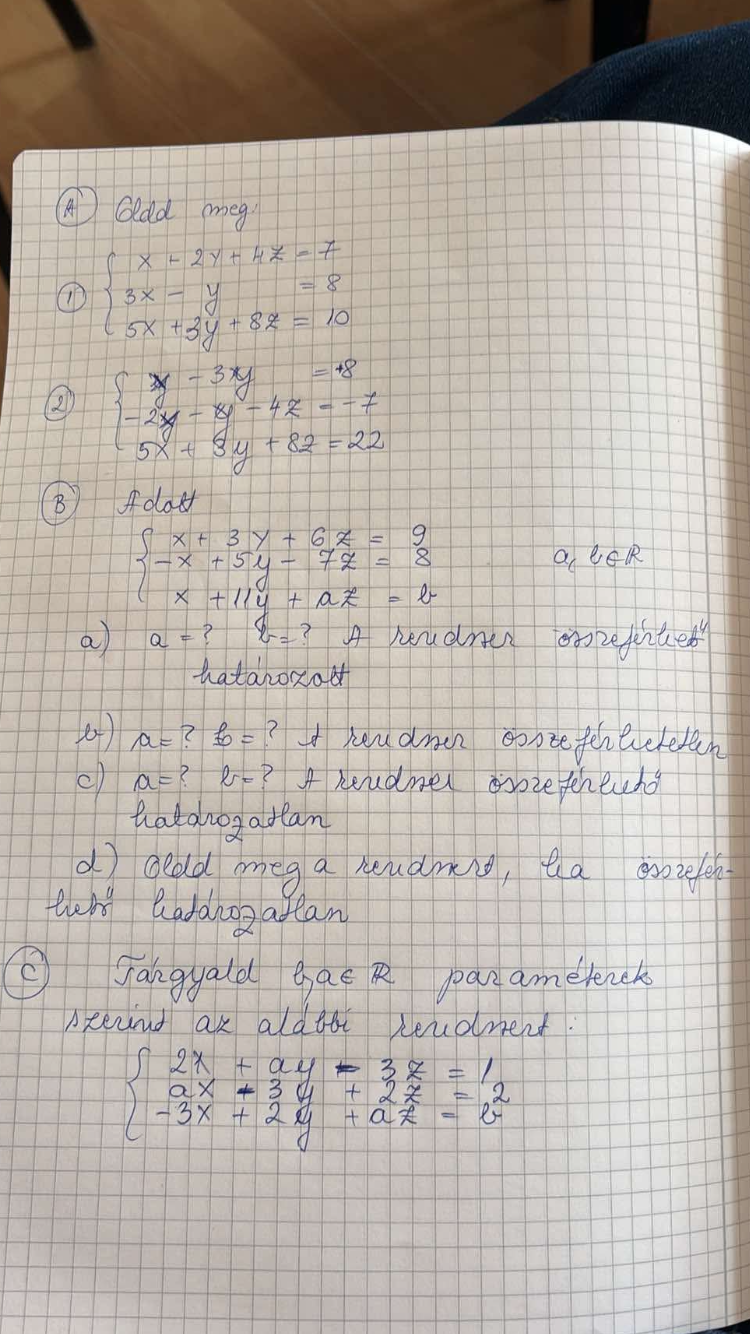 A Oldd meg:
1 x + 2y + 4z = 7
3x - y = 8
5x + 3y + 8z = 10
2 - 3y = +8
-2 - y - 4z = -7
5x + 3y + 8z = 22
B Adott
x + 3y + 6z = 9
-x + 5y - 7z = 8 a, b ∈ R
x + 11y + az = b
a) a = ? b = ? A rendszer összeférhető
határozott
b) a = ? b = ? A rendszer összeférhetetlen
c) a = ? b = ? A rendszer összeférhető
határozatlan
d) Oldd meg a rendszert, ha összefér-
hető határozatlan
C Tárgyald b, a ∈ R paraméterek
szerint az alábbi rendszert:
2x + ay - 3z = 1
ax - 3y + 2z = 2
-3x + 2y + az = b